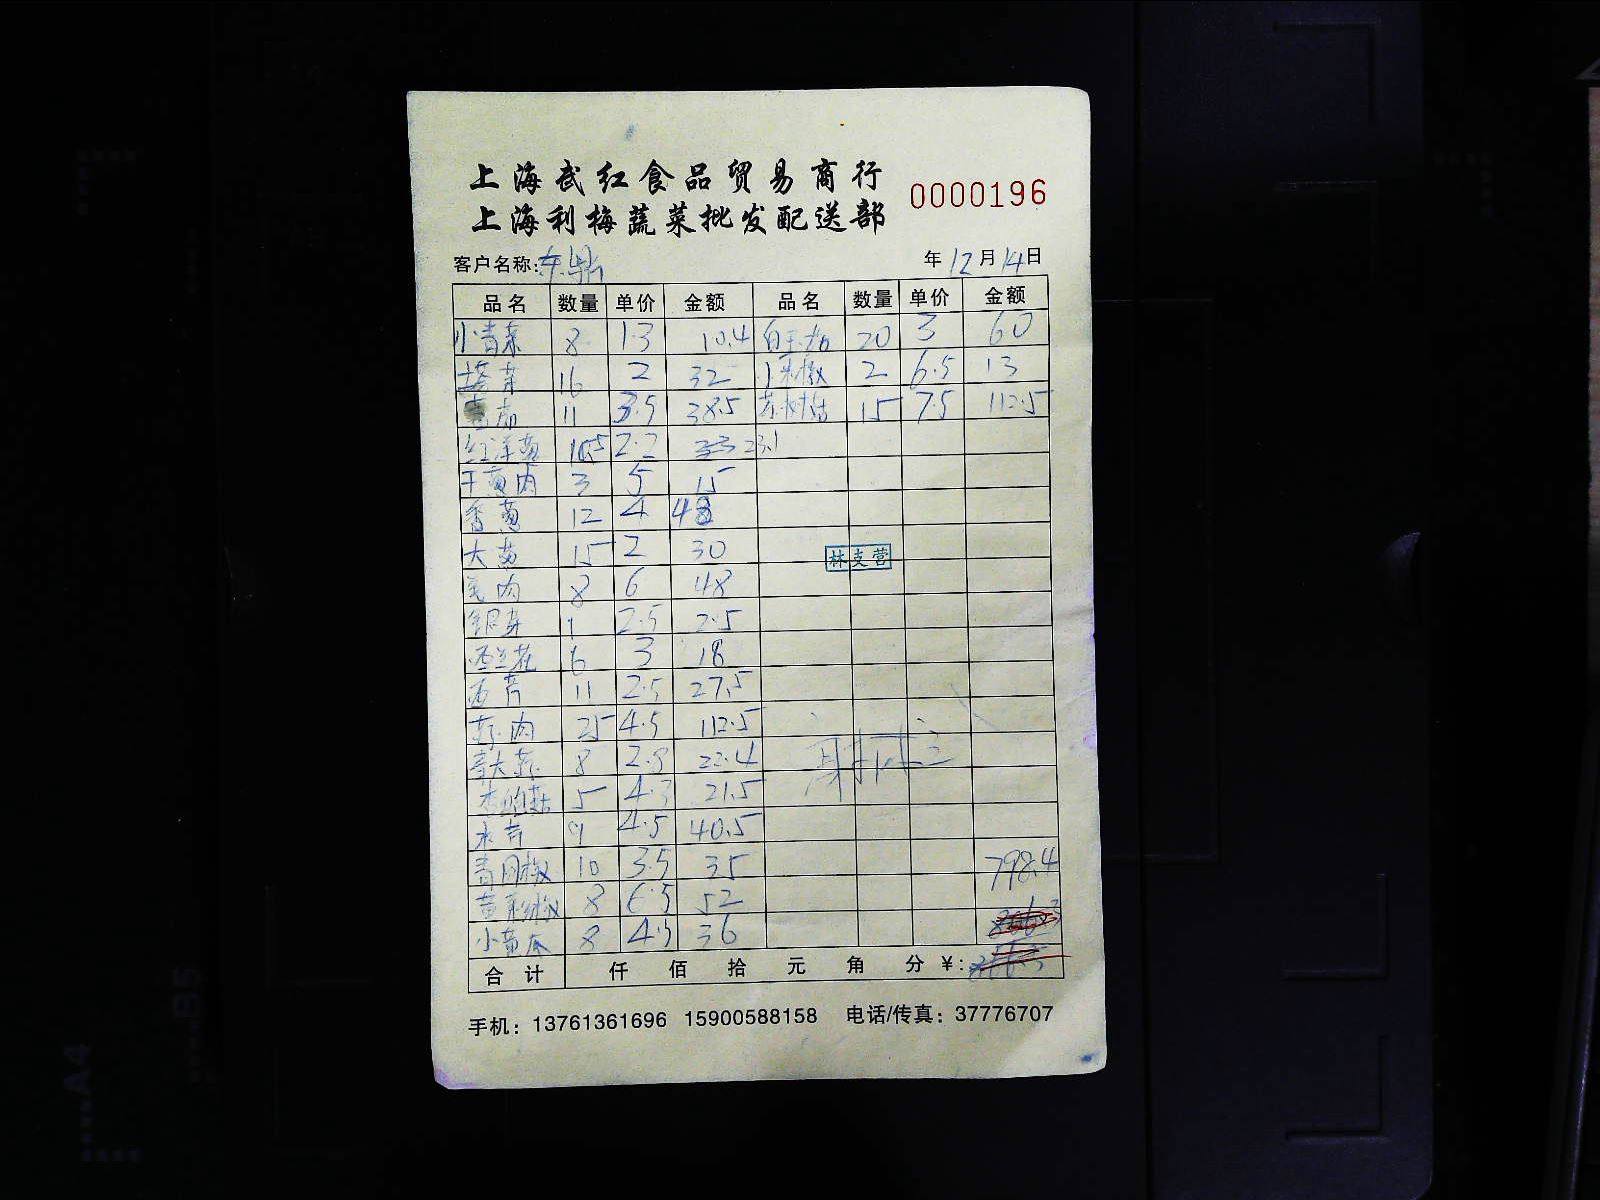 上海武红食品贸易商行
上海利梅蔬菜批发配送部
0000196
客户名称:
年12月14日
品名 数量 单价 金额 品名 数量 单价 金额
小青菜 8 1.3 10.4 20 3 60
塔菜 16 2 32 小米椒 2 6.5 13
11 3.5 38.5 茶树菇 15 7.5 112.5
红洋葱 10.5 2.2 23.1
3 5 15
12 4 48
大 15 2 30
肉 8 6 48
1 2.5 2.5
西兰花 6 3 18
西芹 11 2.5 27.5
肉 25 4.5 112.5
8 2.8 22.4
5 4.3 21.5
水芹 9 4.5 40.5
青圆椒 10 3.5 35
黄彩椒 8 6.5 52
小黄瓜 8 4.5 36
林支营
798.4
合计 仟 佰 拾 元 角 分 ¥:
手机: 13761361696 15900588158 电话/传真: 37776707
B5
A4